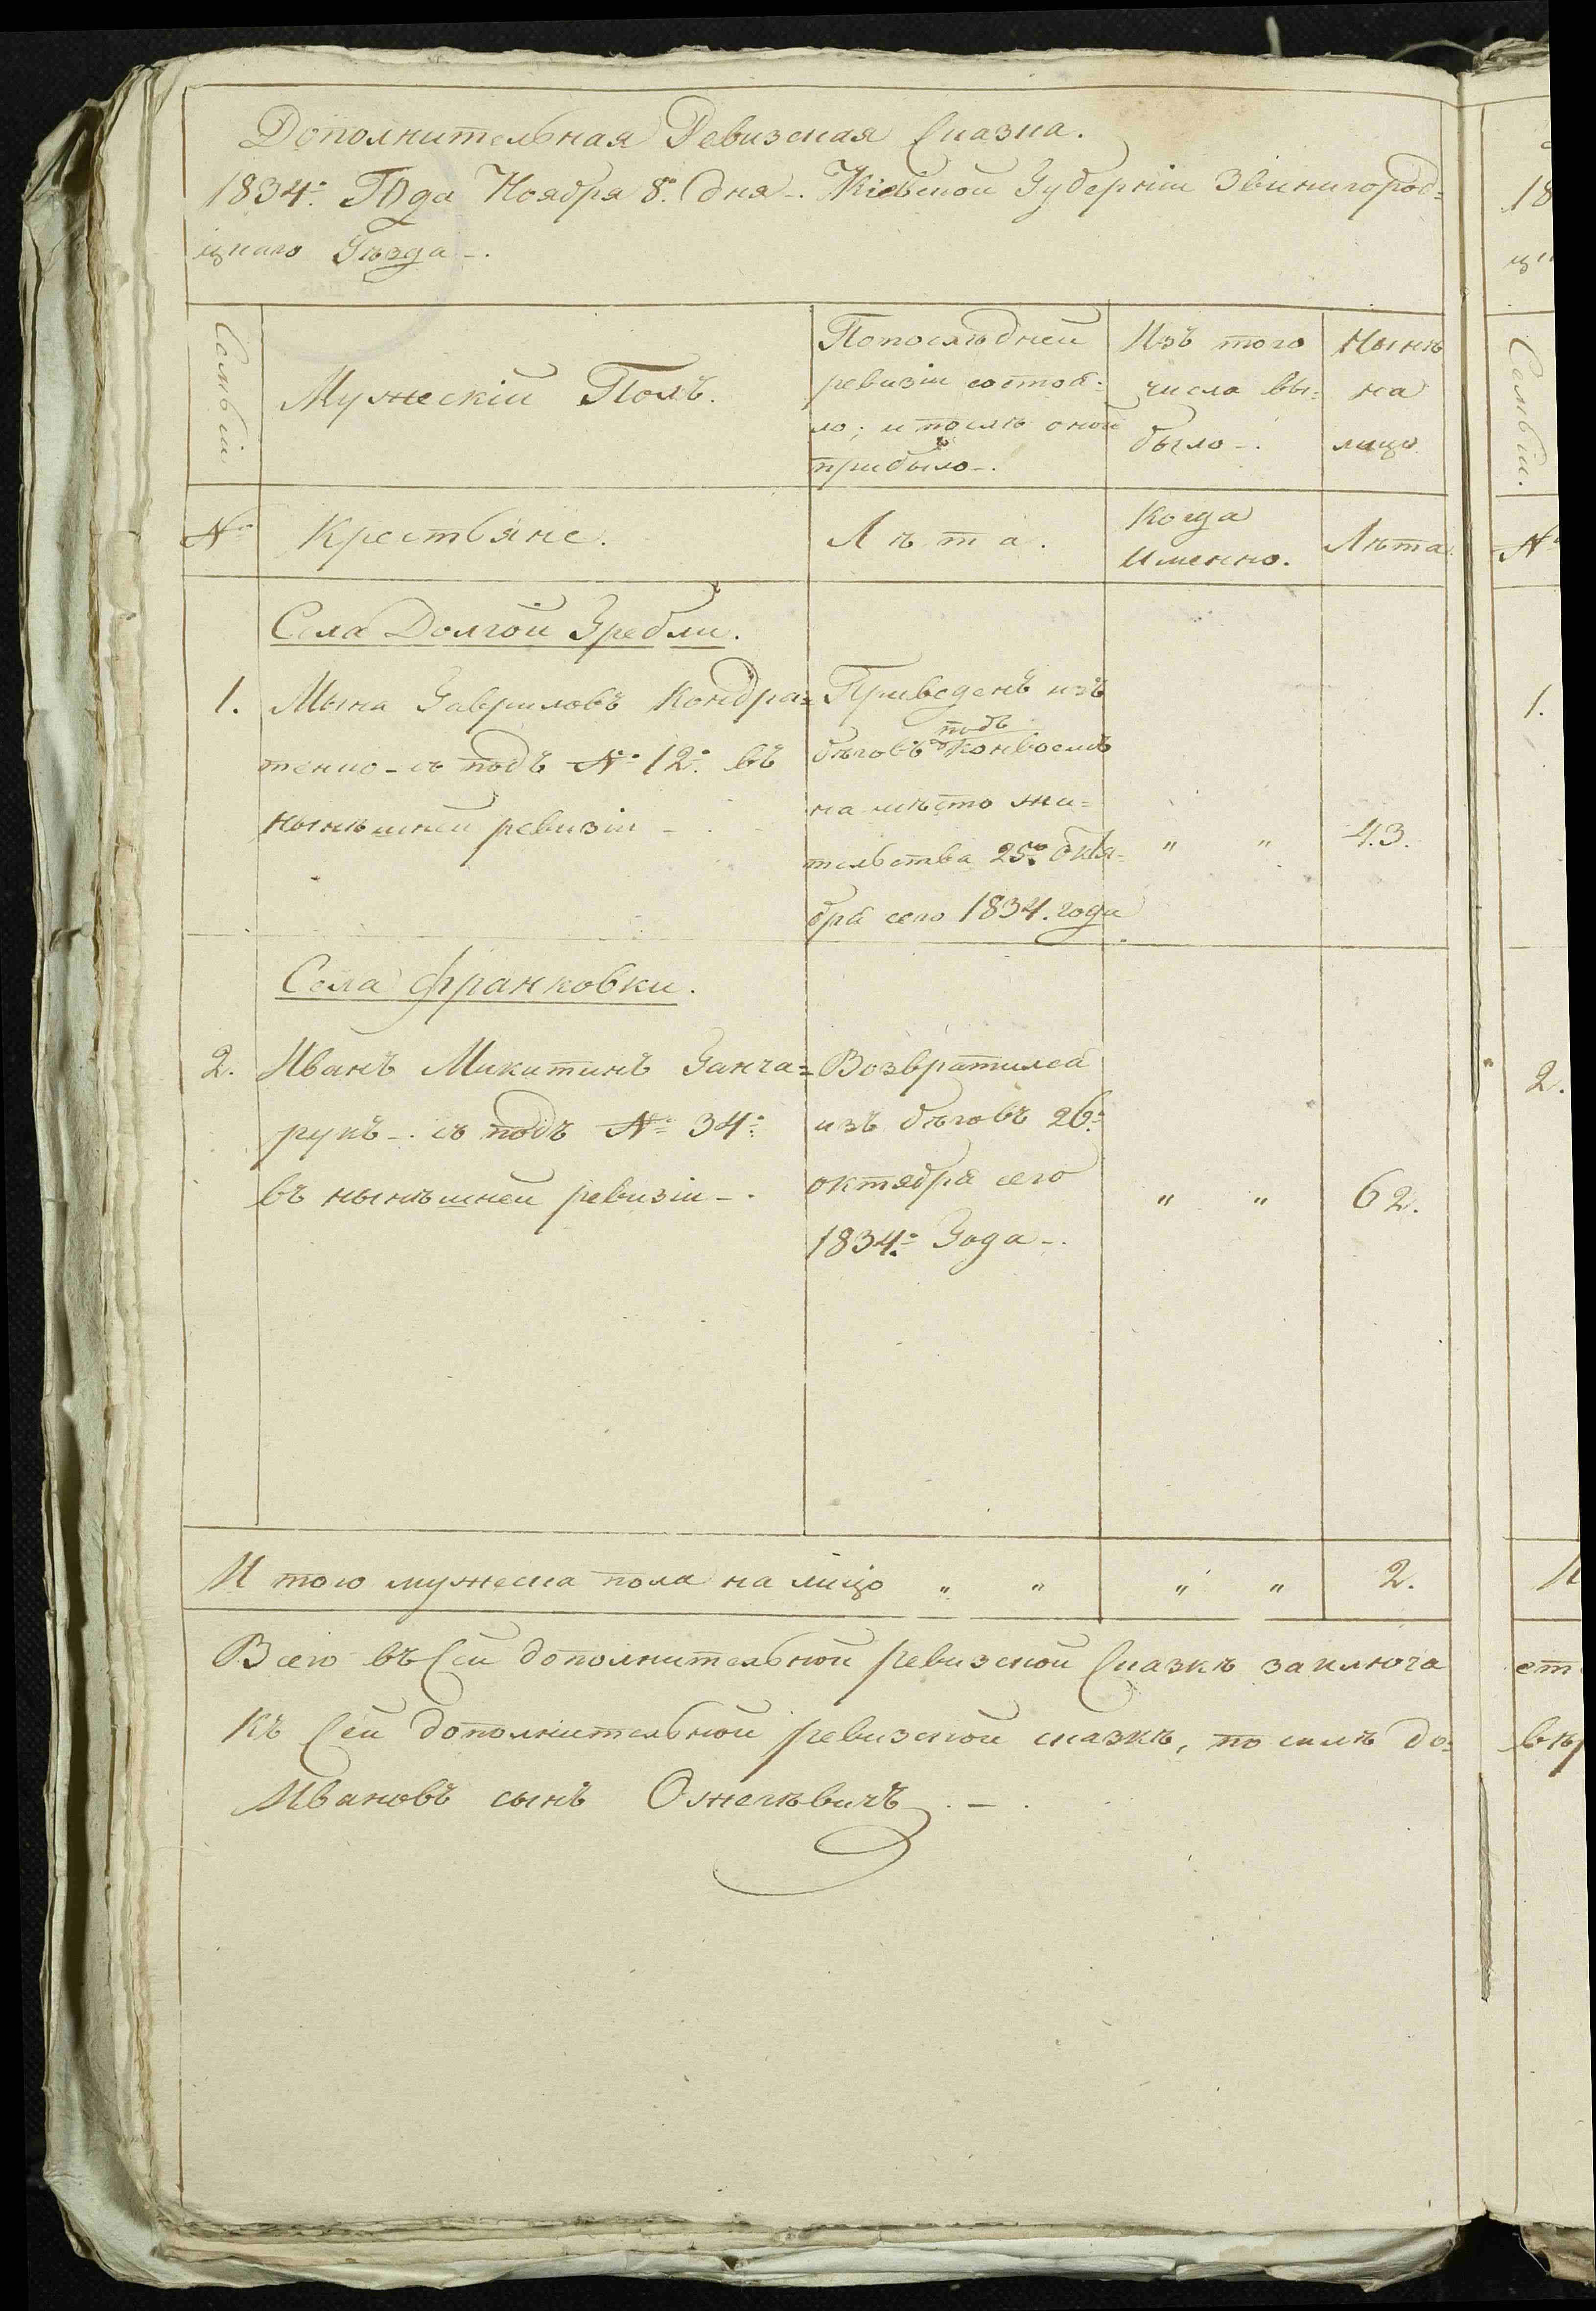 Дополнительная Ревизская Сказка.
1834. Года Ноября 8. дня Кіевской Губерніи Звинигород=
цкаго Уѣзда
Семьи.
Мужескій Полъ.
По послѣдней
ревизіи состоя=
ло; и послѣ оной
прибыло
Изъ того
числа вы=
было
Нынѣ
на
лицо
№
Крестьяне.
Лѣта.
Когда
Именно.
Лѣта
Села Долгой Гребли.
1.
Мына Гавриловъ Кондра=
тенко съ подъ № 12. въ
нынѣшней ревизіи
Приведенъ изъ
бѣговъ подъ конвоемъ
на мѣсто жи=
тельства 25. Октя=
бря сего 1834. года
" "
43.
Села Франковки.
2.
Иванъ Микитинъ Ганча=
рукъ съ подъ № 34.
въ нынѣшней ревизіи
Возвратился
изъ бѣговъ 26.
октября сего
1834. Года
" "
62.
И того мужеска пола на лицо " " " " 2.
Всего въ Сей дополнительной ревизской Сказкѣ заключа
Къ Сей дополнительной ревизской сказкѣ, по силѣ до=
Ивановъ сынъ
18
Семьи.
№
1.
2.
И
ет
вѣр